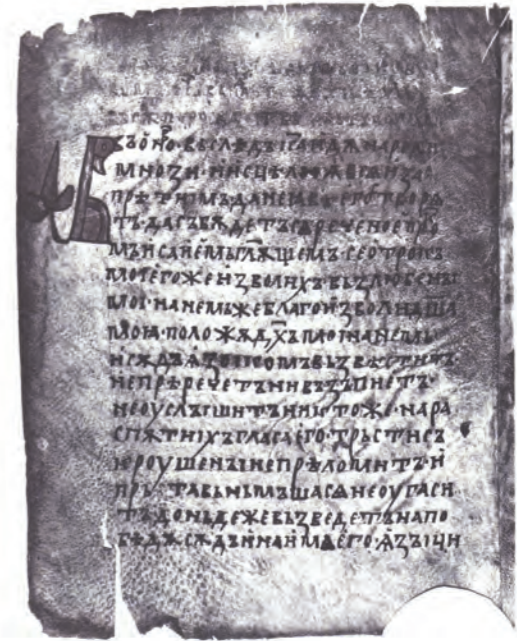 Въ оно · въслѣдъ іс҃а идѫ народи
мнози · и исцѣли ѩ вьсѧ и за
прѣти имъ да не авѣ его творѧ
тъ · да събѫдетъ сѧ реченое про
мъ исаиемъ гл҃ѫщемъ · се отрокъ
мои егоже изволихъ възлюбены
мои · на немьже благоизволи дш҃а
моꙗ · положѫ дх҃ъ мои на немь ·
и сѫдъ ѩзꙑкомъ възвѣститъ ·
не прѣречетъ ни възъпиетъ ·
не оуслꙑшитъ никтоже · на ра
спѫтиіхъ гласа его · трьсти съ
кроушенꙑ не прѣломитъ · и
пръта вьнъмъша сѧ не оугаси
тъ доньдеже възведетъ на по
бѣдѫ сѫдъ и на имѧ его · ѩзꙑци